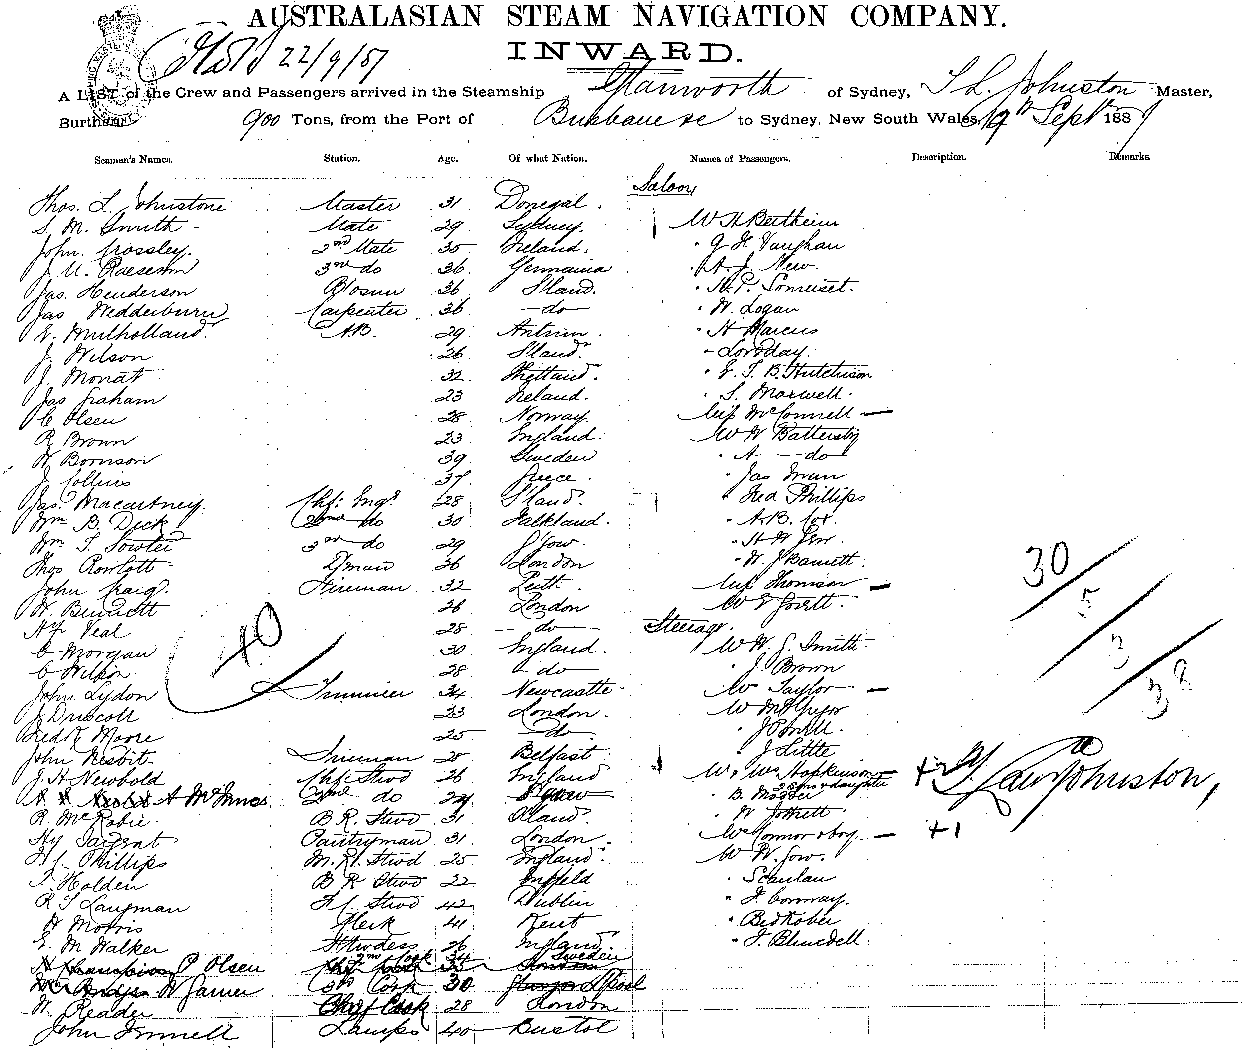 AUSTRALASIAN STEAM NAVIGATION COMPANY.
INWARD.
22/9/87
A LIST of the Crew and Passengers arrived in the Steamship Tamworth of Sydney, T L Johnston Master,
Burthen 900 Tons, from the Port of Brisbane &c to Sydney, New South Wales, 19th Septr 1887
Seamen's Names. Station. Age. Of what Nation. Names of Passengers. Description. Remarks
Saloon
Thos. L Johnstone Master 31 Donegal.
S. M. Smith Mate 29 Sydney. Mr H Bertheim
John Crossley. 2nd Mate 35 Ireland. " G H Vaughan
3rd do 26 Germania " A. J. New
Jas. Henderson Bosun 36 Sland. " H. P. Somerset.
Jas Wedderburn Carpenter 36 -do- " W. Logan
E. Mulholland A.B. 29 Antrim " H Marcus
J. Wilson 26 Sland. " Loveday.
J. Monat 32 Shetland. " E. T. B. Hutchison
Jas Graham 23 Ireland. " S. Maxwell.
C Olsen 28 Norway. Mrs McConnell —
R Brown 23 England. Mr W Battersby
W Bornson 39 Sweden " A - do
J Collins 37 Greece. " Jas Irwin
Jas. Macartney. Chf: Engr 28 Sland. " Fred Phillips
Wm B Dick 2nd do 30 Falkland. " A. B. Cox.
Wm T. Fowler 3rd do 29 G'gow. " H W
Thos Rowlatt D/man 26 London " W. J Barnett
John Craig. Fireman 32 Leith. Mrs Thomson —
W. Bennett 26 London
Af Veal 28 - do - Steerage.
C Morgan 30 England. Mr W. G. Smith
C Wilkin 28 do " J Brown
John Lydon Trimmer 34 Newcastle Mr Taylor —
J Driscoll 23 London. Mr McGregor
Fredk Moore 25 do " J Powell.
John Nesbit Fireman 25 Belfast. " J Little
J. H Newbold Chf: Stwd 26 England Mr & Mrs Hopkinson — +2
A McInnes 2nd do 24 B. son & daughter
R. McRobie. B. R. Stwd 31 Sland.
Hy Sargent Pantryman 31 London. Mr Connor & boy — +1
H. Phillips M. R. Stwd 25 England. Mr W. Gow.
T. Holden B R Stwd 22 Enfield " Scanlan
R T Langman F/C Stwd 42 Dublin " F Conway.
H Morris Clerk 41 Kent " Bedkober
E. M Walker Stwdess 26 England. " F. Blundell.
P Olsen 2nd Cook 34 Sweden
W Garner 30 L'Pool
W. Redder Chief Cook 28 London
John Immell Lamps 40 Bristol
40
30
5
3
38
T Law Johnston,